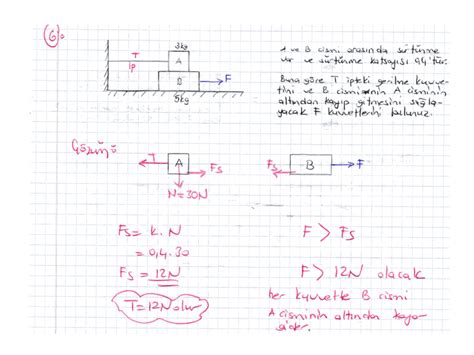 6)
3kg
T
A
ip
B
F
5kg
A ve B cismi arasında sürtünme
var ve sürtünme katsayısı 0,4'tür.
Buna göre T ipteki gerilme kuvve-
tini ve B cisminin A cisminin
altından kayıp gitmesini sağla-
yacak F kuvvetlerini bulunuz.
Çözüm:
T
A
Fs
N=30N
Fs
B
F
Fs = k.N
= 0,4.30
Fs = 12N
T=12N olur
F > Fs
F > 12N olacak
her kuvvetle B cismi
A cisminin altından kayıp
gider.